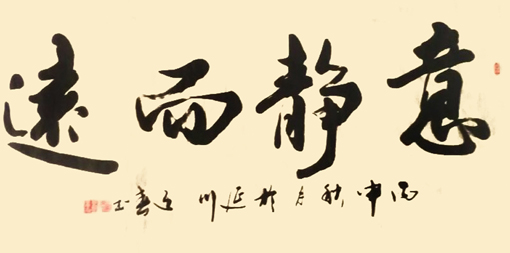 意静而遠
丙申秋月於延川